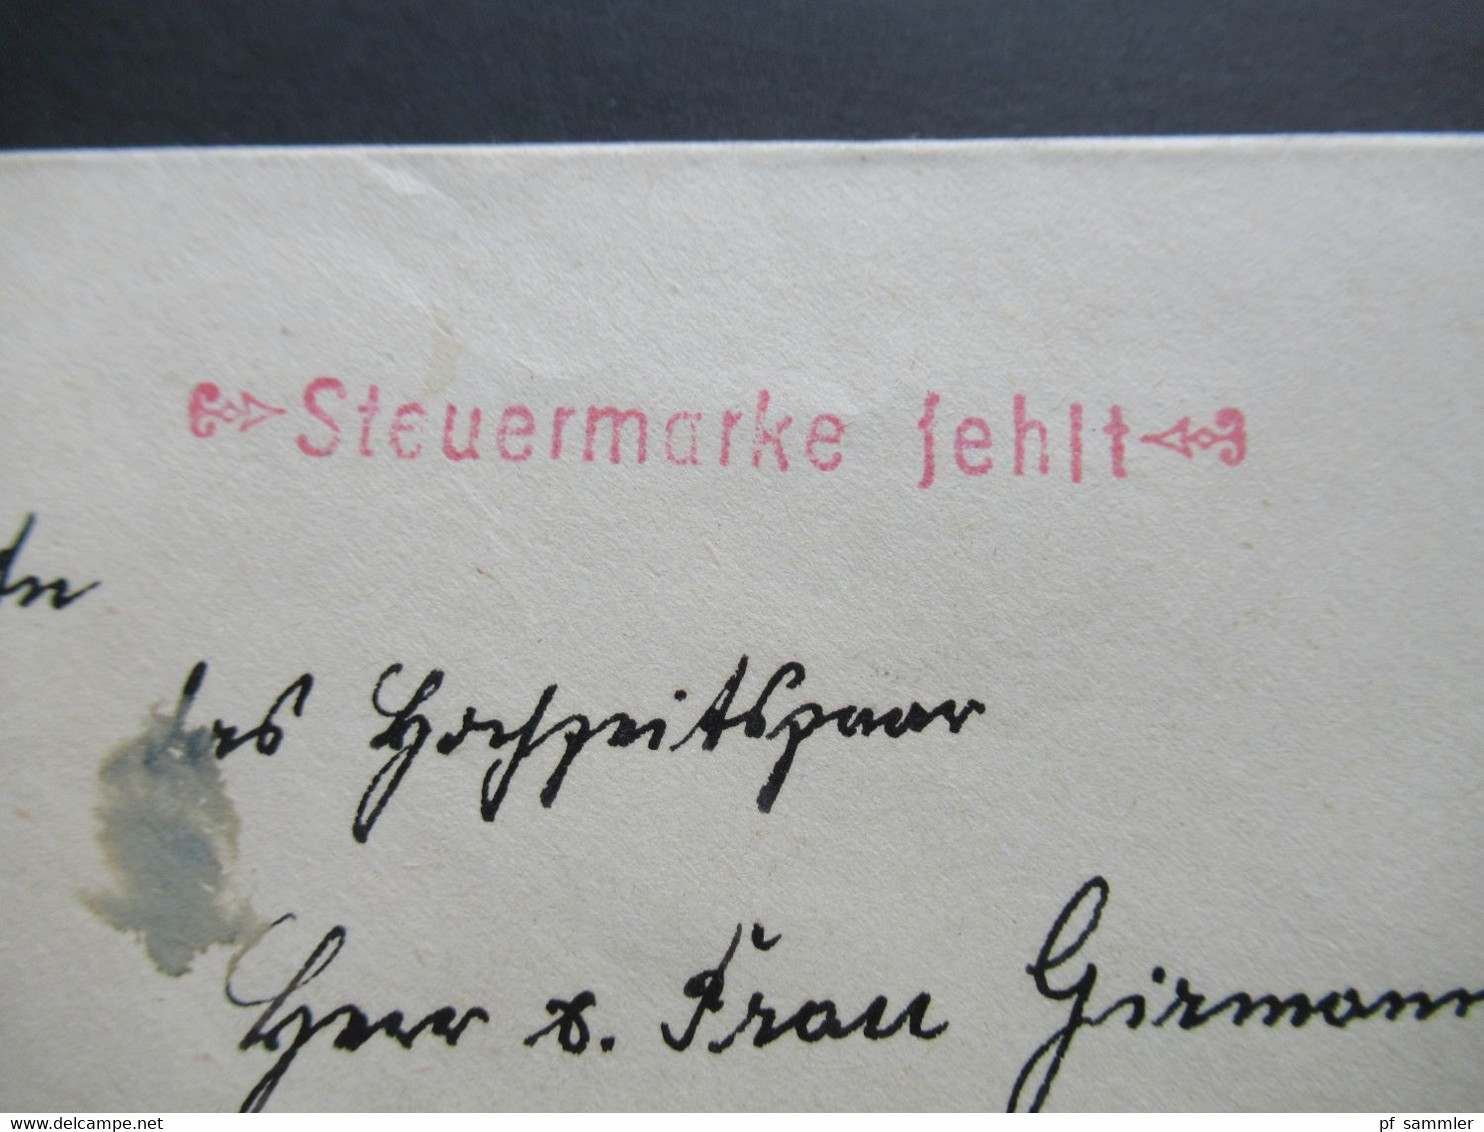 Steuermarke fehlt
An
das Hochzeitspaar
Herr u. Frau Girmann
delcampe.net
pf_sammler